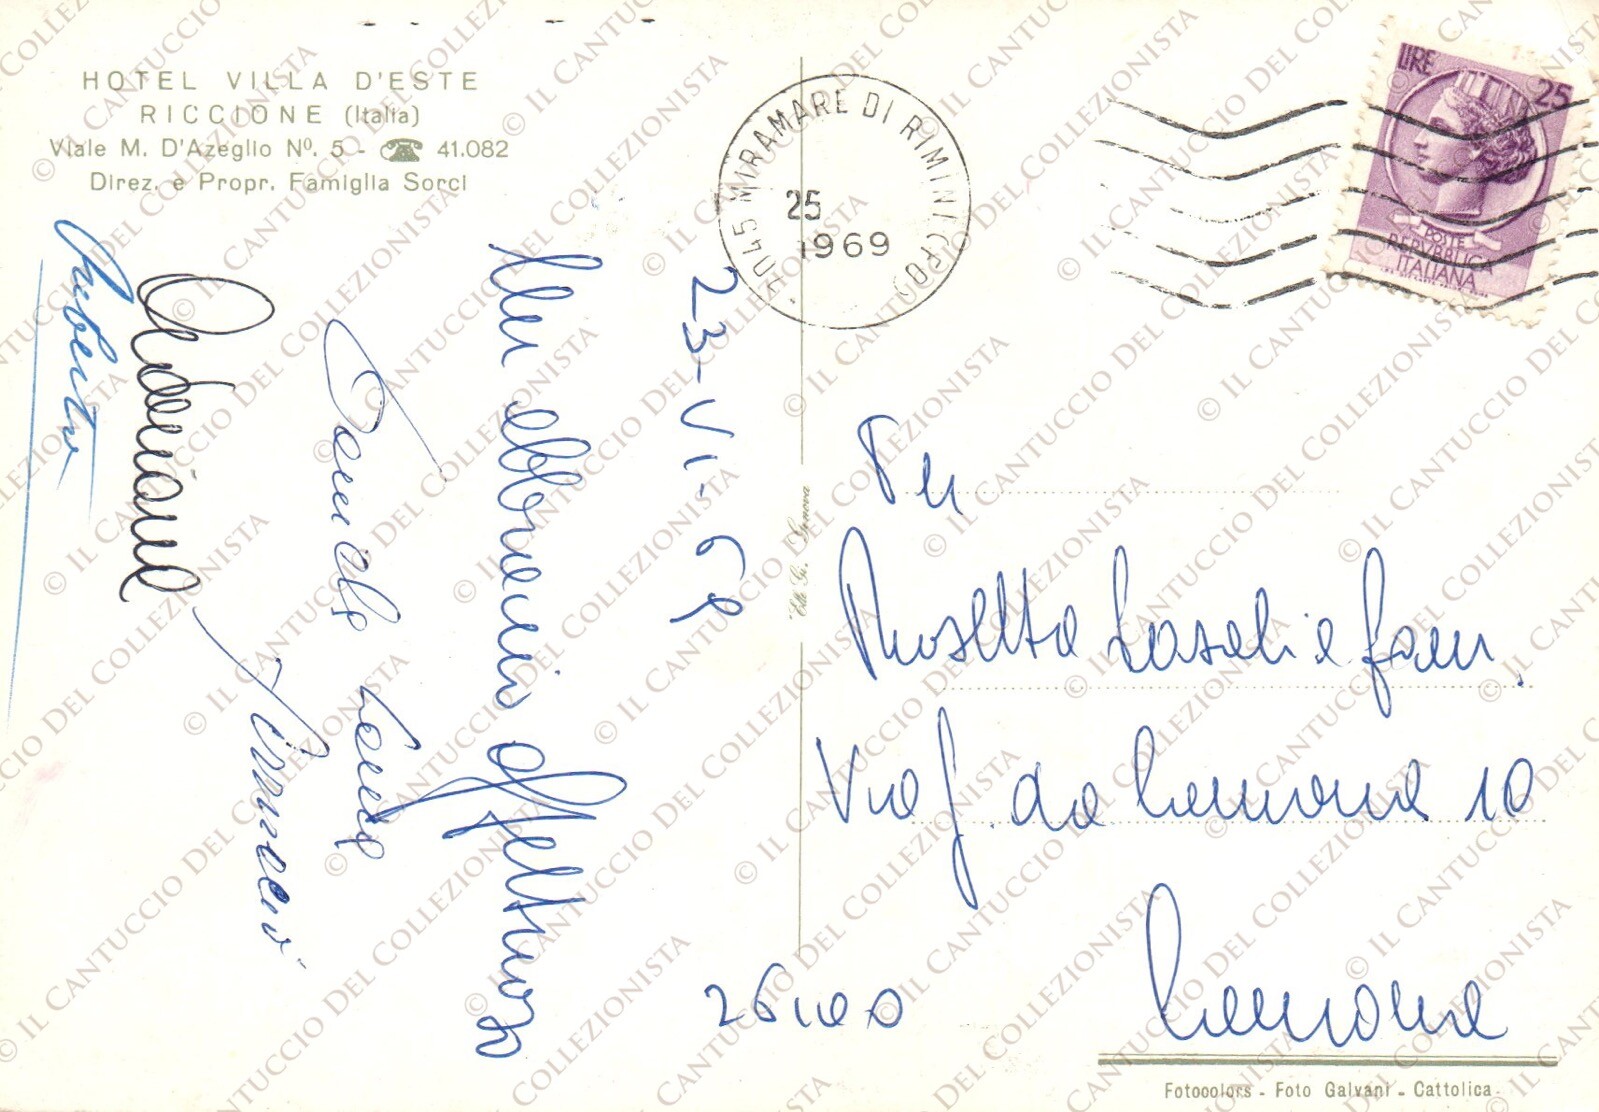 HOTEL VILLA D'ESTE
RICCIONE (Italia)
Viale M. D'Azeglio Nº. 5 - ☎ 41.082
Direz. e Propr. Famiglia Sorci
MIRAMARE DI RIMINI (FO)
25
1969
LIRE 25
POSTE
REPVBBLICA
ITALIANA
23-VI-69
Un abbraccio affettuoso
Umberto
Edit. G. Genova
Per
Rosetta Casali e fam.
Via G. da Cremona 10
26100 Cremona
Fotocolors - Foto Galvani - Cattolica
© IL CANTUCCIO DEL COLLEZIONISTA